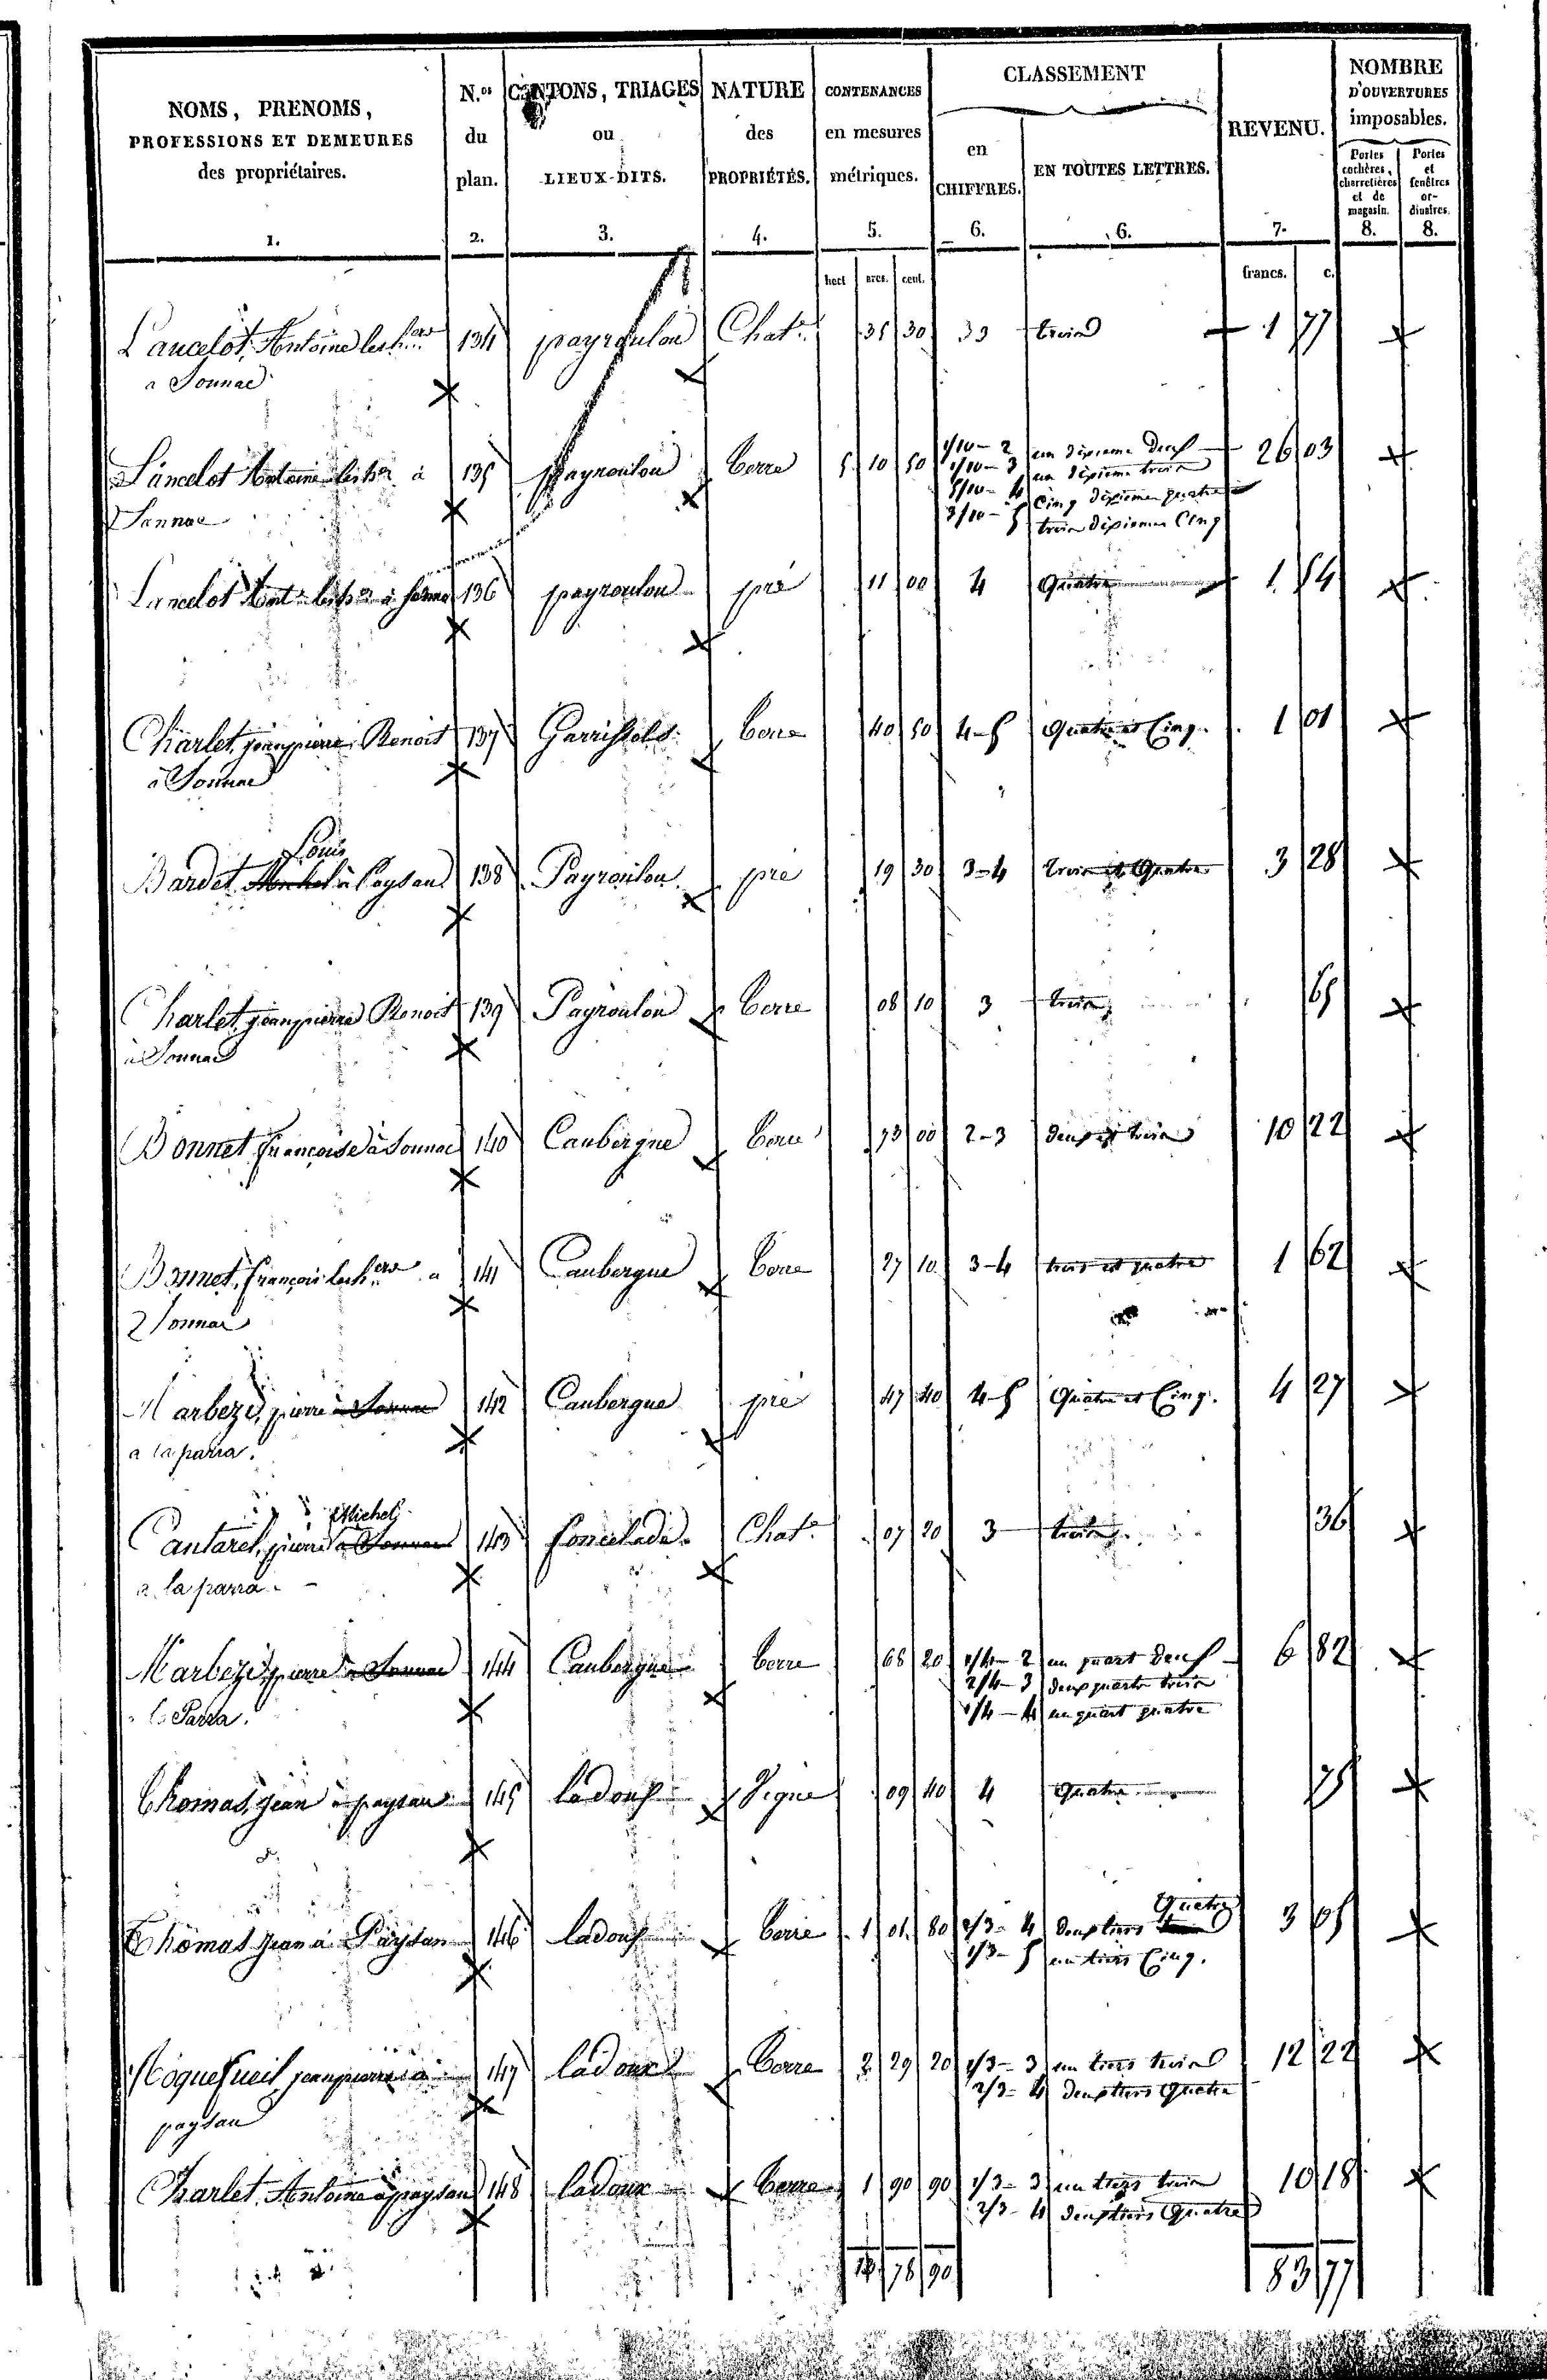 NOMS, PRENOMS, PROFESSIONS ET DEMEURES des propriétaires. 1.
N.os du plan. 2.
CANTONS, TRIAGES ou LIEUX-DITS. 3.
NATURE des PROPRIÉTÉS. 4.
CONTENANCES en mesures métriques. 5.
CLASSEMENT
en CHIFFRES. 6.
EN TOUTES LETTRES. 6.
REVENU. 7.
NOMBRE D'OUVERTURES imposables.
Portes cochères, charretières et de magasin. 8.
Portes et fenêtres ordinaires. 8.
hect ares. cent. francs. c.
Lancelot, Antoine les her 134 payroulou Chat. 35 30 33 trois 1 77
a Sonnac
Lancelot Antoine les her à 135 payroulou terre 5 10 50 1/10 - 2 un dixieme deux 26 03
1/10 - 3 un dixieme trois
Sonnac 5/10 - 4 Cinq dixiemes quatre
3/10 - 5 trois dixiemes Cinq
Lancelot Ant. les her à Sonnac 136 payroulou pré 11 00 4 Quatre 1 54
Charlet, jeanpierre Benoit 137 terre 40 50 4-5 Quatre et Cinq. 1 01
à Sonnac
Louis
Bardet à Paysan 138 Payroulou pré 19 30 3-4 trois et Quatre 3 28
Charlet, jeanpierre Benoit 139 Payroulou terre 08 10 3 trois 65
à Sonnac
Bonnet, françoise à Sonnac 140 Caubergue terre 73 00 2-3 deux et trois 10 22
Bonnet, françois les her a 141 Caubergue terre 27 10 3-4 trois et quatre 1 62
Sonnac
Marbezy, pierre à Sonnac 142 Caubergue pré 47 40 4-5 Quatre et Cinq. 4 27
a la parra.
Michel
Cantarel, pierre à Sonnac 143 foncelade. Chat. 07 20 3 trois 36
a la parra
Marbezy, pierre à Sonnac 144 Caubergue terre 68 20 1/4 - 2 un quart deux 6 82
2/4 - 3 deux quarts trois
la Parra. 1/4 - 4 un quart quatre
Thomas, jean à paysan 145 ladoux Vigne 09 40 4 Quatre 75
Quatre
Thomas jean à Paysan 146 ladoux terre 1 01 80 2/3 - 4 deux tiers 3 05
1/3 - 5 un tiers Cinq.
Roquefueil, jeanpierre à 147 ladoux terre 2 29 20 1/3 - 3 un tiers trois 12 22
2/3 - 4 deux tiers Quatre
paysan
Charlet, Antoine à paysan 148 ladoux terre 1 90 90 1/3 - 3 un tiers trois 10 18
2/3 - 4 deux tiers Quatre
78 90 83 77